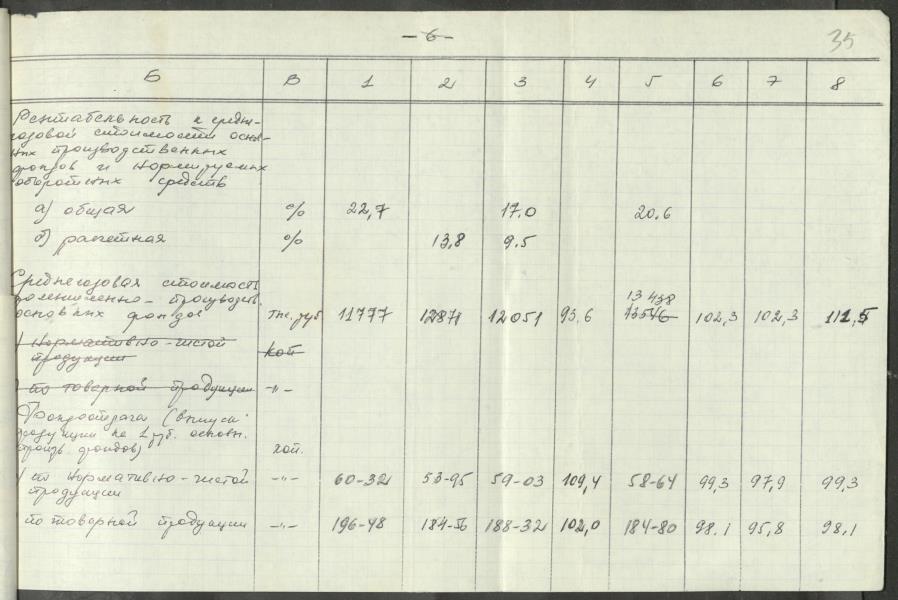 -6-
35
Б В 1 2 3 4 5 6 7 8
Рентабельность к средне-
годовой стоимости осно-
вных производственных
фондов и нормируемых
оборотных средств
а) общая % 22,7 17.0 20.6
б) расчетная % 13,8 9.5
Среднегодовая стоимость
промышленно-производств.
13438
основных фондов тыс.руб 11777 12871 12051 93.6 13546 102,3 102,3 111,5
) Нормативно-чистой коп
продукции
) по товарной продукции -"-
Фондоотдача (выпуск
продукции на 1 руб. основн.
произв. фондов) коп.
) по нормативно-чистой -"- 60-32 53-95 59-03 109,4 58-64 99,3 97,9 99,3
продукции
по товарной продукции -"- 196-48 184-56 188-32 102,0 184-80 98.1 95,8 98,1